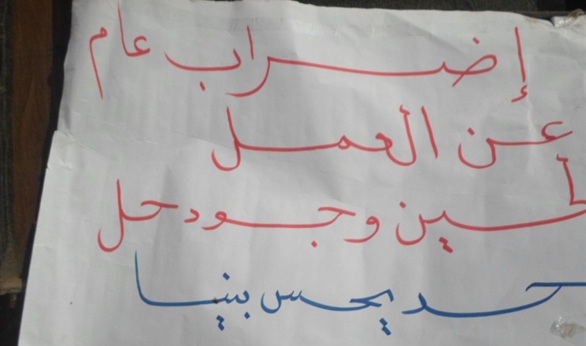 إضراب عام
عن العمل
لحين وجود حل
حد يحس بينا